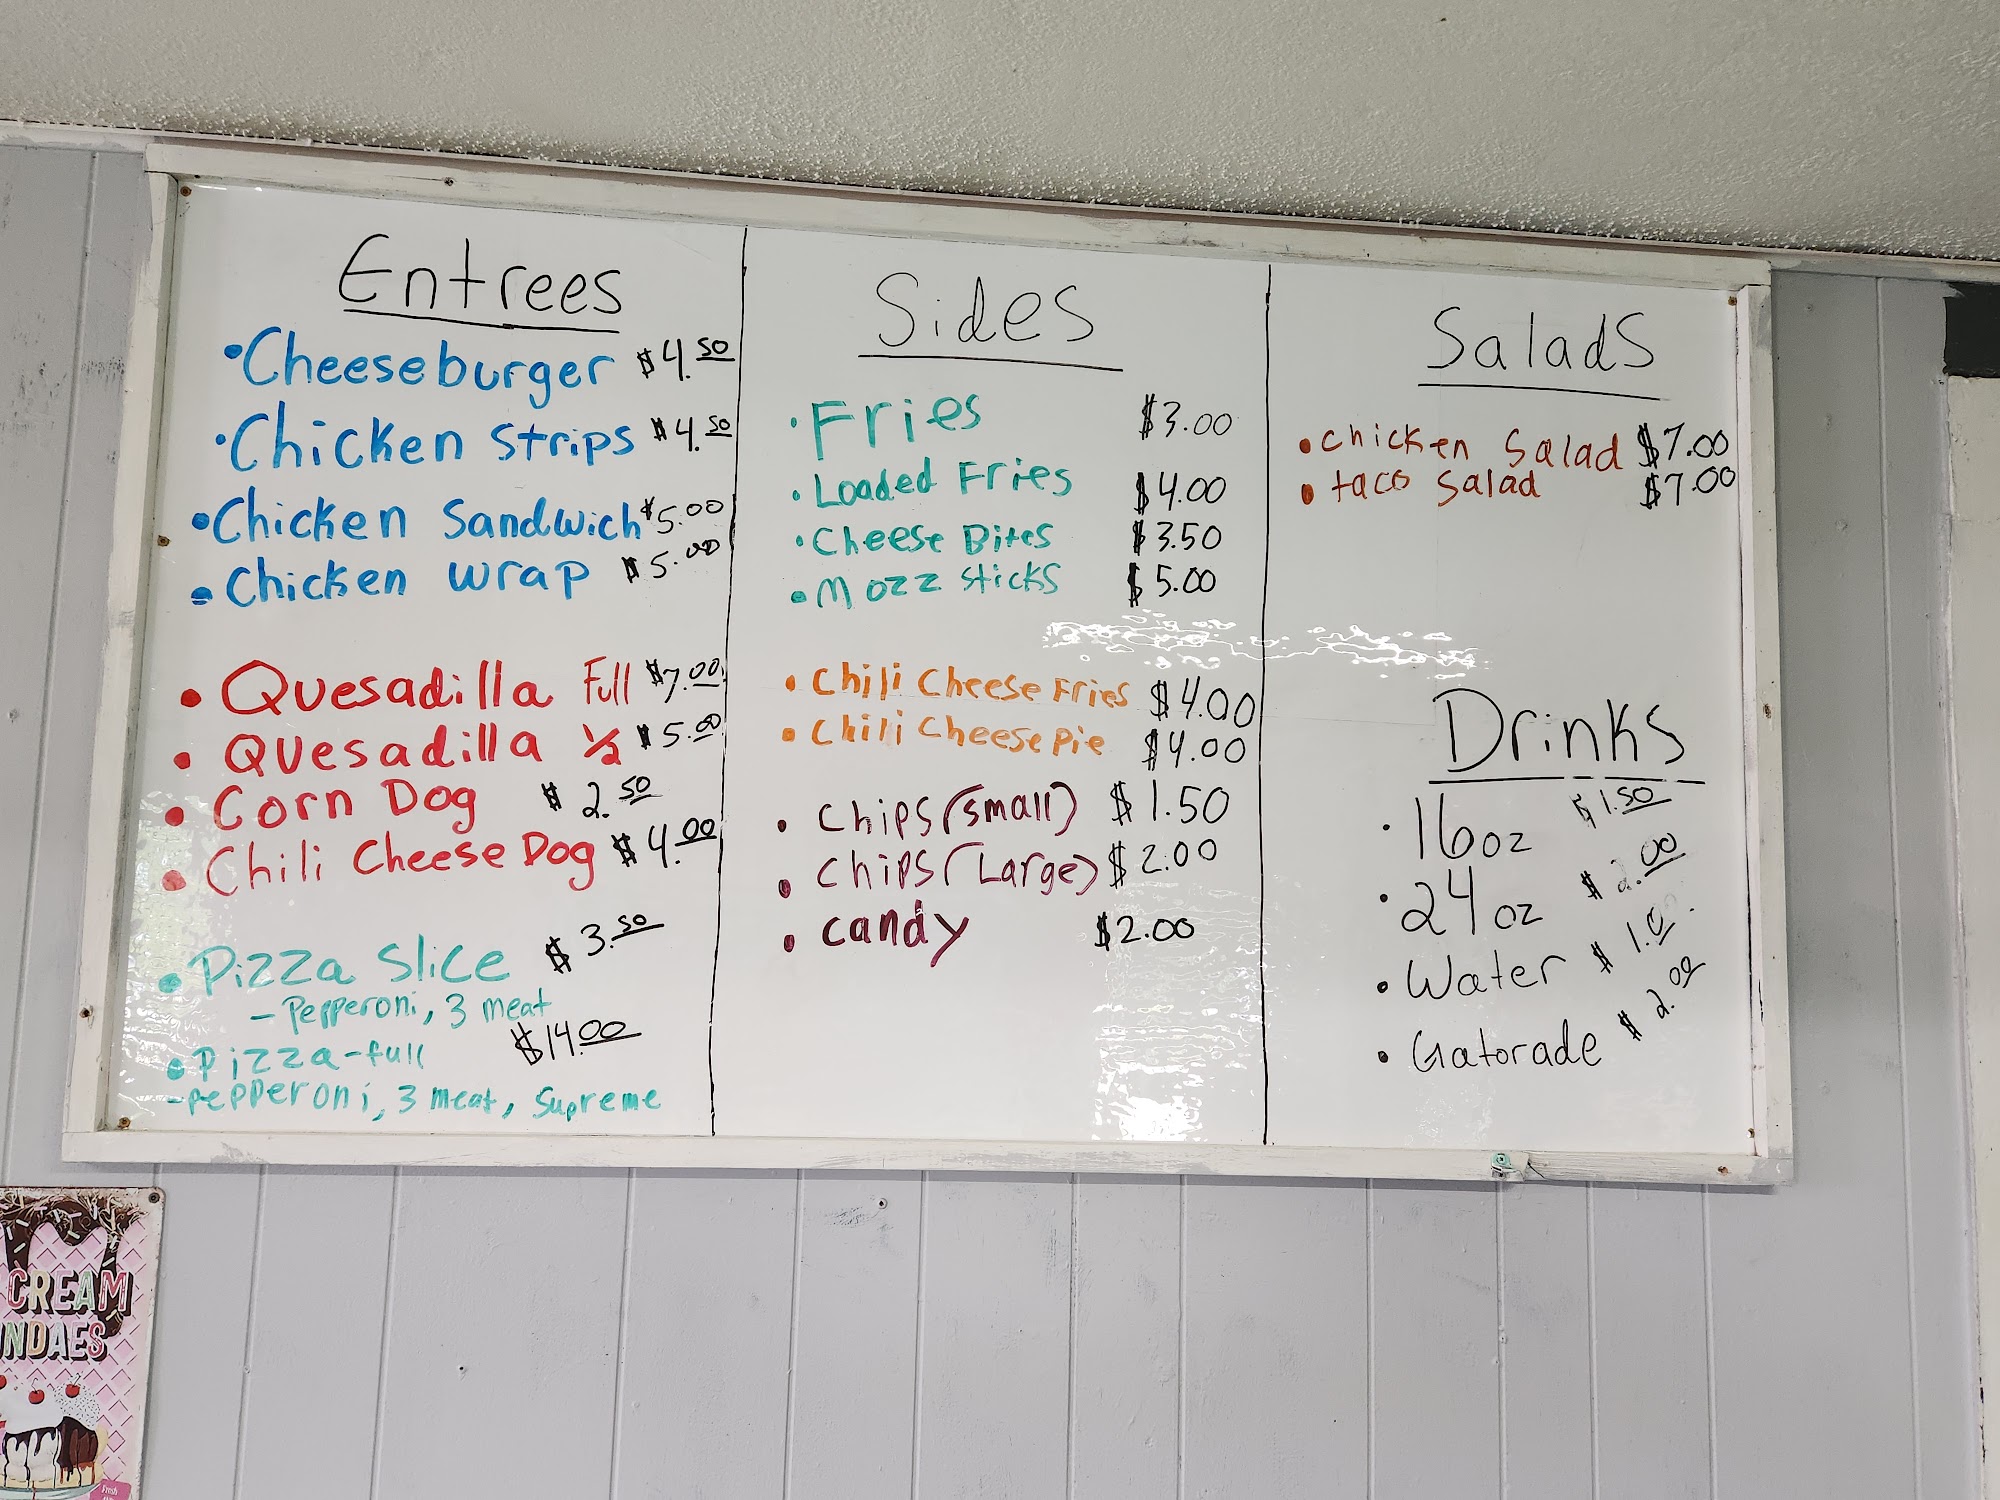 Entrees
• Cheeseburger $4.50
• Chicken Strips $4.50
• Chicken Sandwich $5.00
• Chicken Wrap $5.00
• Quesadilla Full $7.00
• Quesadilla 1/2 $5.00
• Corn Dog $2.50
• Chili Cheese Dog $4.00
• Pizza Slice $3.50
- Pepperoni, 3 meat
• Pizza-full $14.00
- pepperoni, 3 meat, Supreme
Sides
• Fries $3.00
• Loaded Fries $4.00
• Cheese Bites $3.50
• Mozz Sticks $5.00
• Chili Cheese Fries $4.00
• Chili Cheese Pie $4.00
• Chips (small) $1.50
• Chips (Large) $2.00
• Candy $2.00
Salads
• Chicken Salad $7.00
• taco Salad $7.00
Drinks
• 16oz $1.50
• 24oz $2.00
• Water $1.00
• Gatorade $2.00
CREAM
NDAES
Fresh